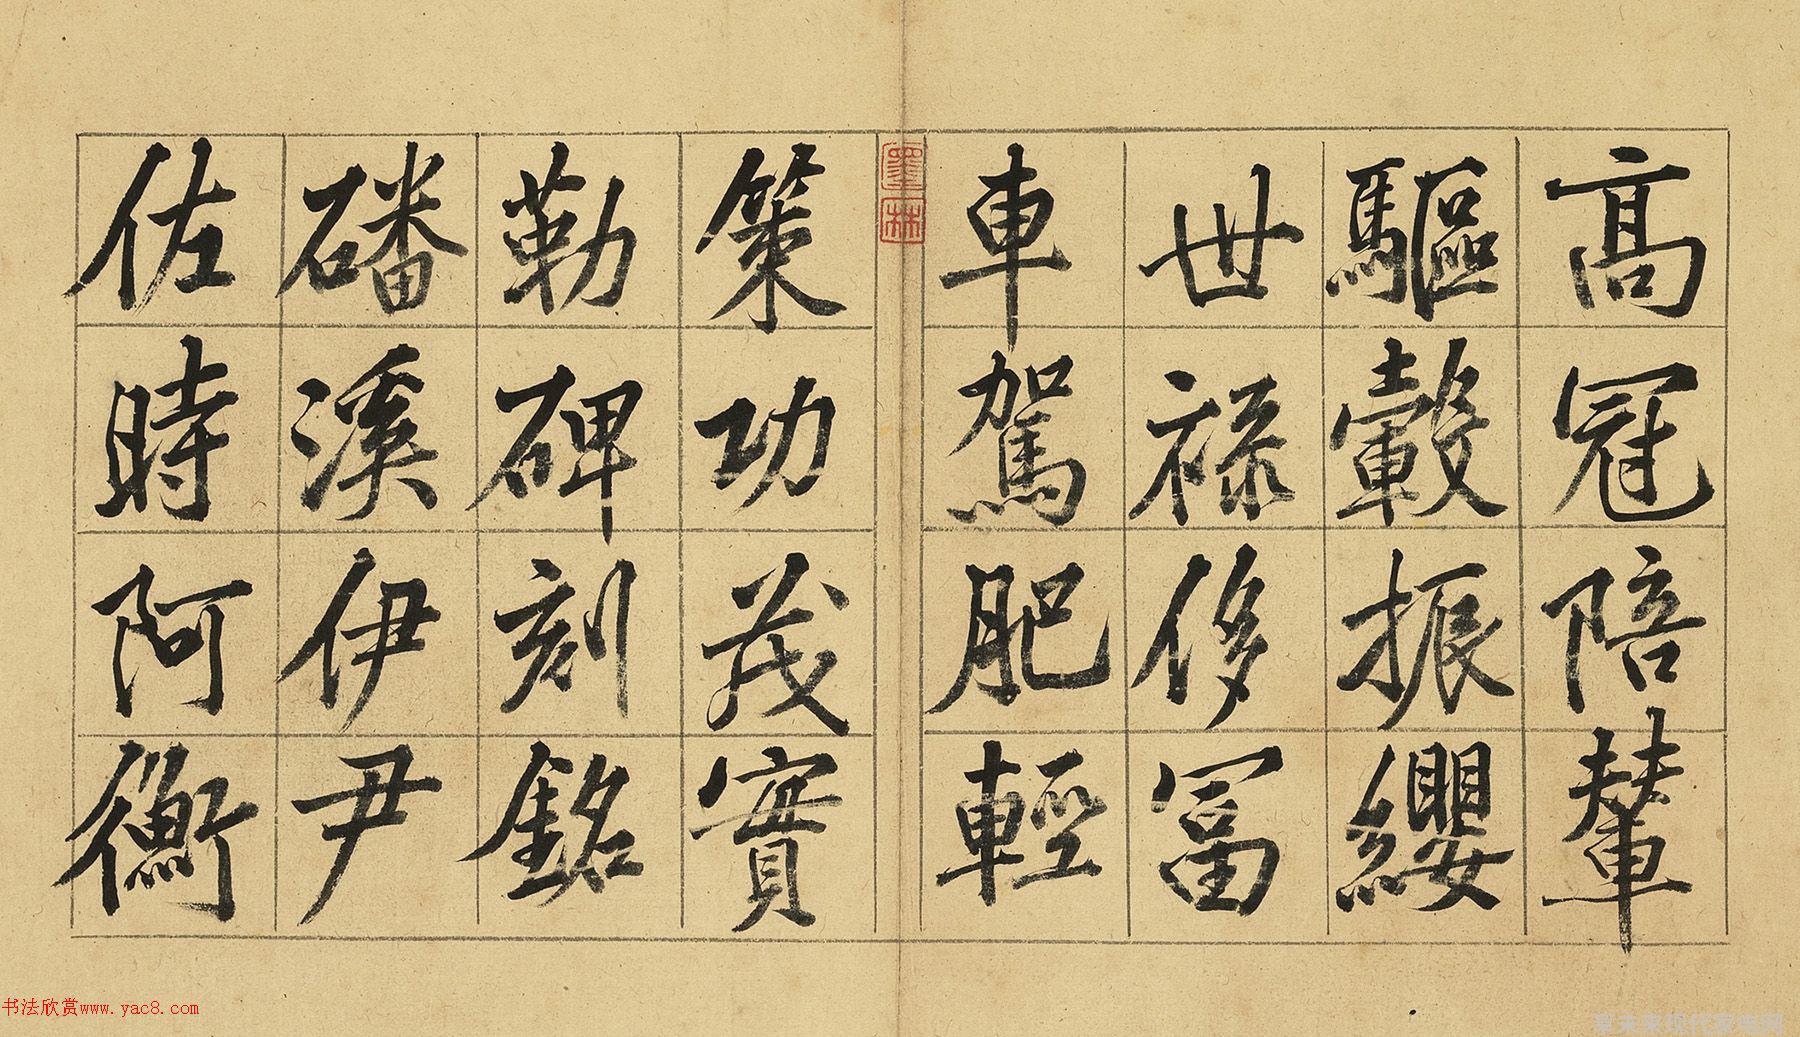 高冠陪輦
驅轂振纓
世祿侈冨
車駕肥輕
策功茂實
勒碑刻銘
磻溪伊尹
佐時阿衡
墨林
书法欣赏www.yac8.com